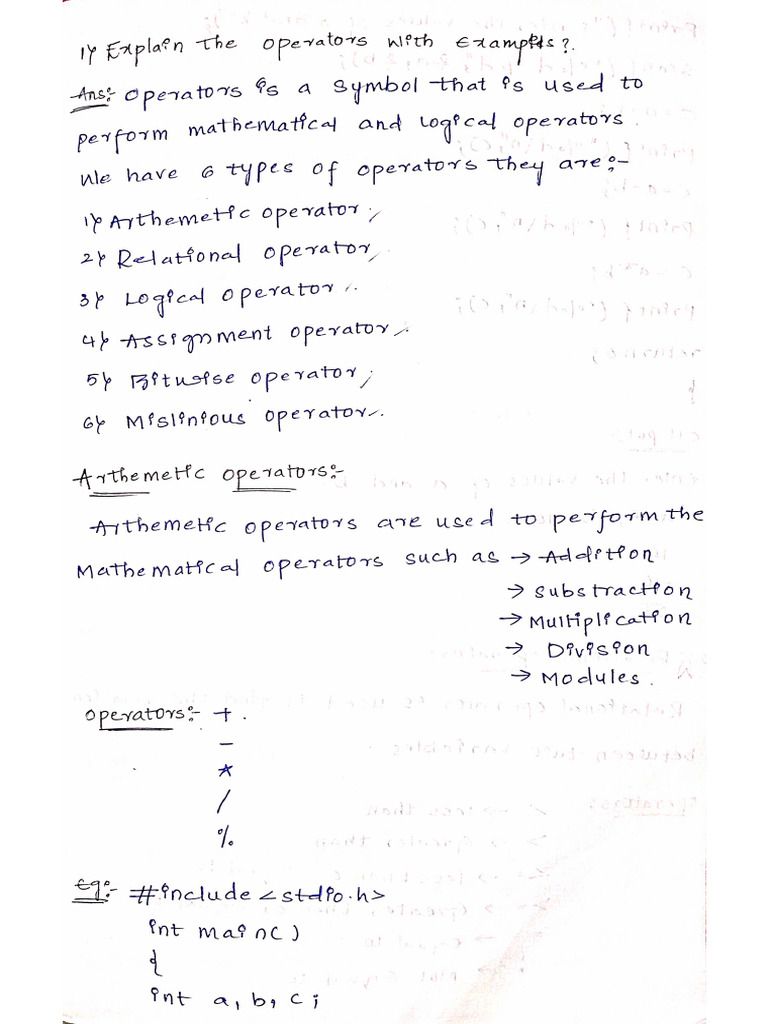 1) Explain the operators with Examples?.
Ans:- Operators is a symbol that is used to
perform mathematical and Logical operators.
We have 6 types of operators they are:-
1) Arthemetic operator,
2) Relational operator,
3) Logical operator.
4) Assignment operator,
5) Bitwise operator,
6) Mislinious operator.
Arthemetic operators:-
Arthemetic operators are used to perform the
Mathematical operators such as → Addition
→ Substraction
→ Multiplication
→ Division
→ Modules.
Operators:- + .
-
*
/
%
Eg:- #include <stdio.h>
int main()
{
int a, b, c;